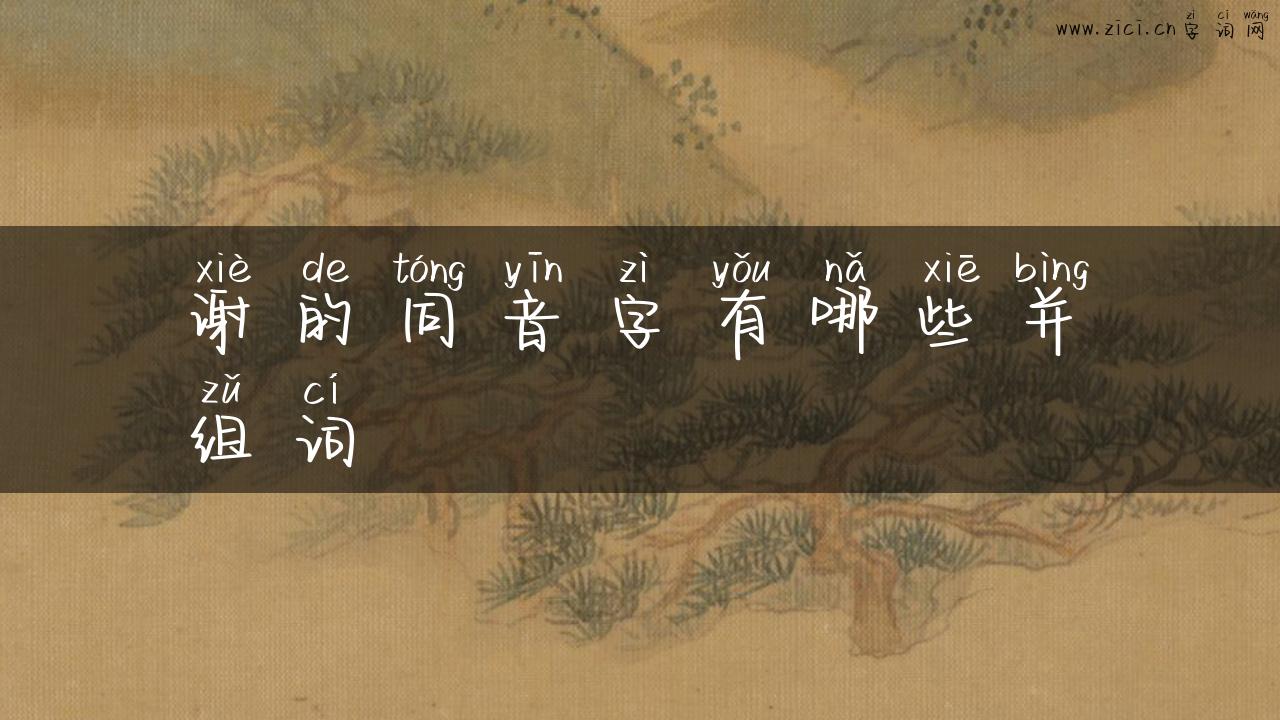 zì cí wǎng
www.zici.cn 字 词 网
xiè de tóng yīn zì yǒu nǎ xiē bìng
谢 的 同 音 字 有 哪 些 并
zǔ cí
组 词